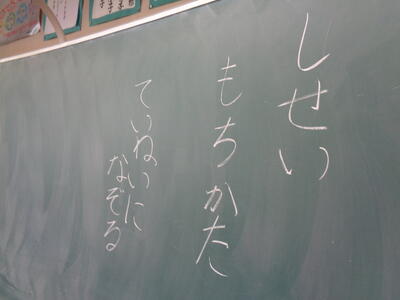 しせい
もちかた
ていねいに
なぞる